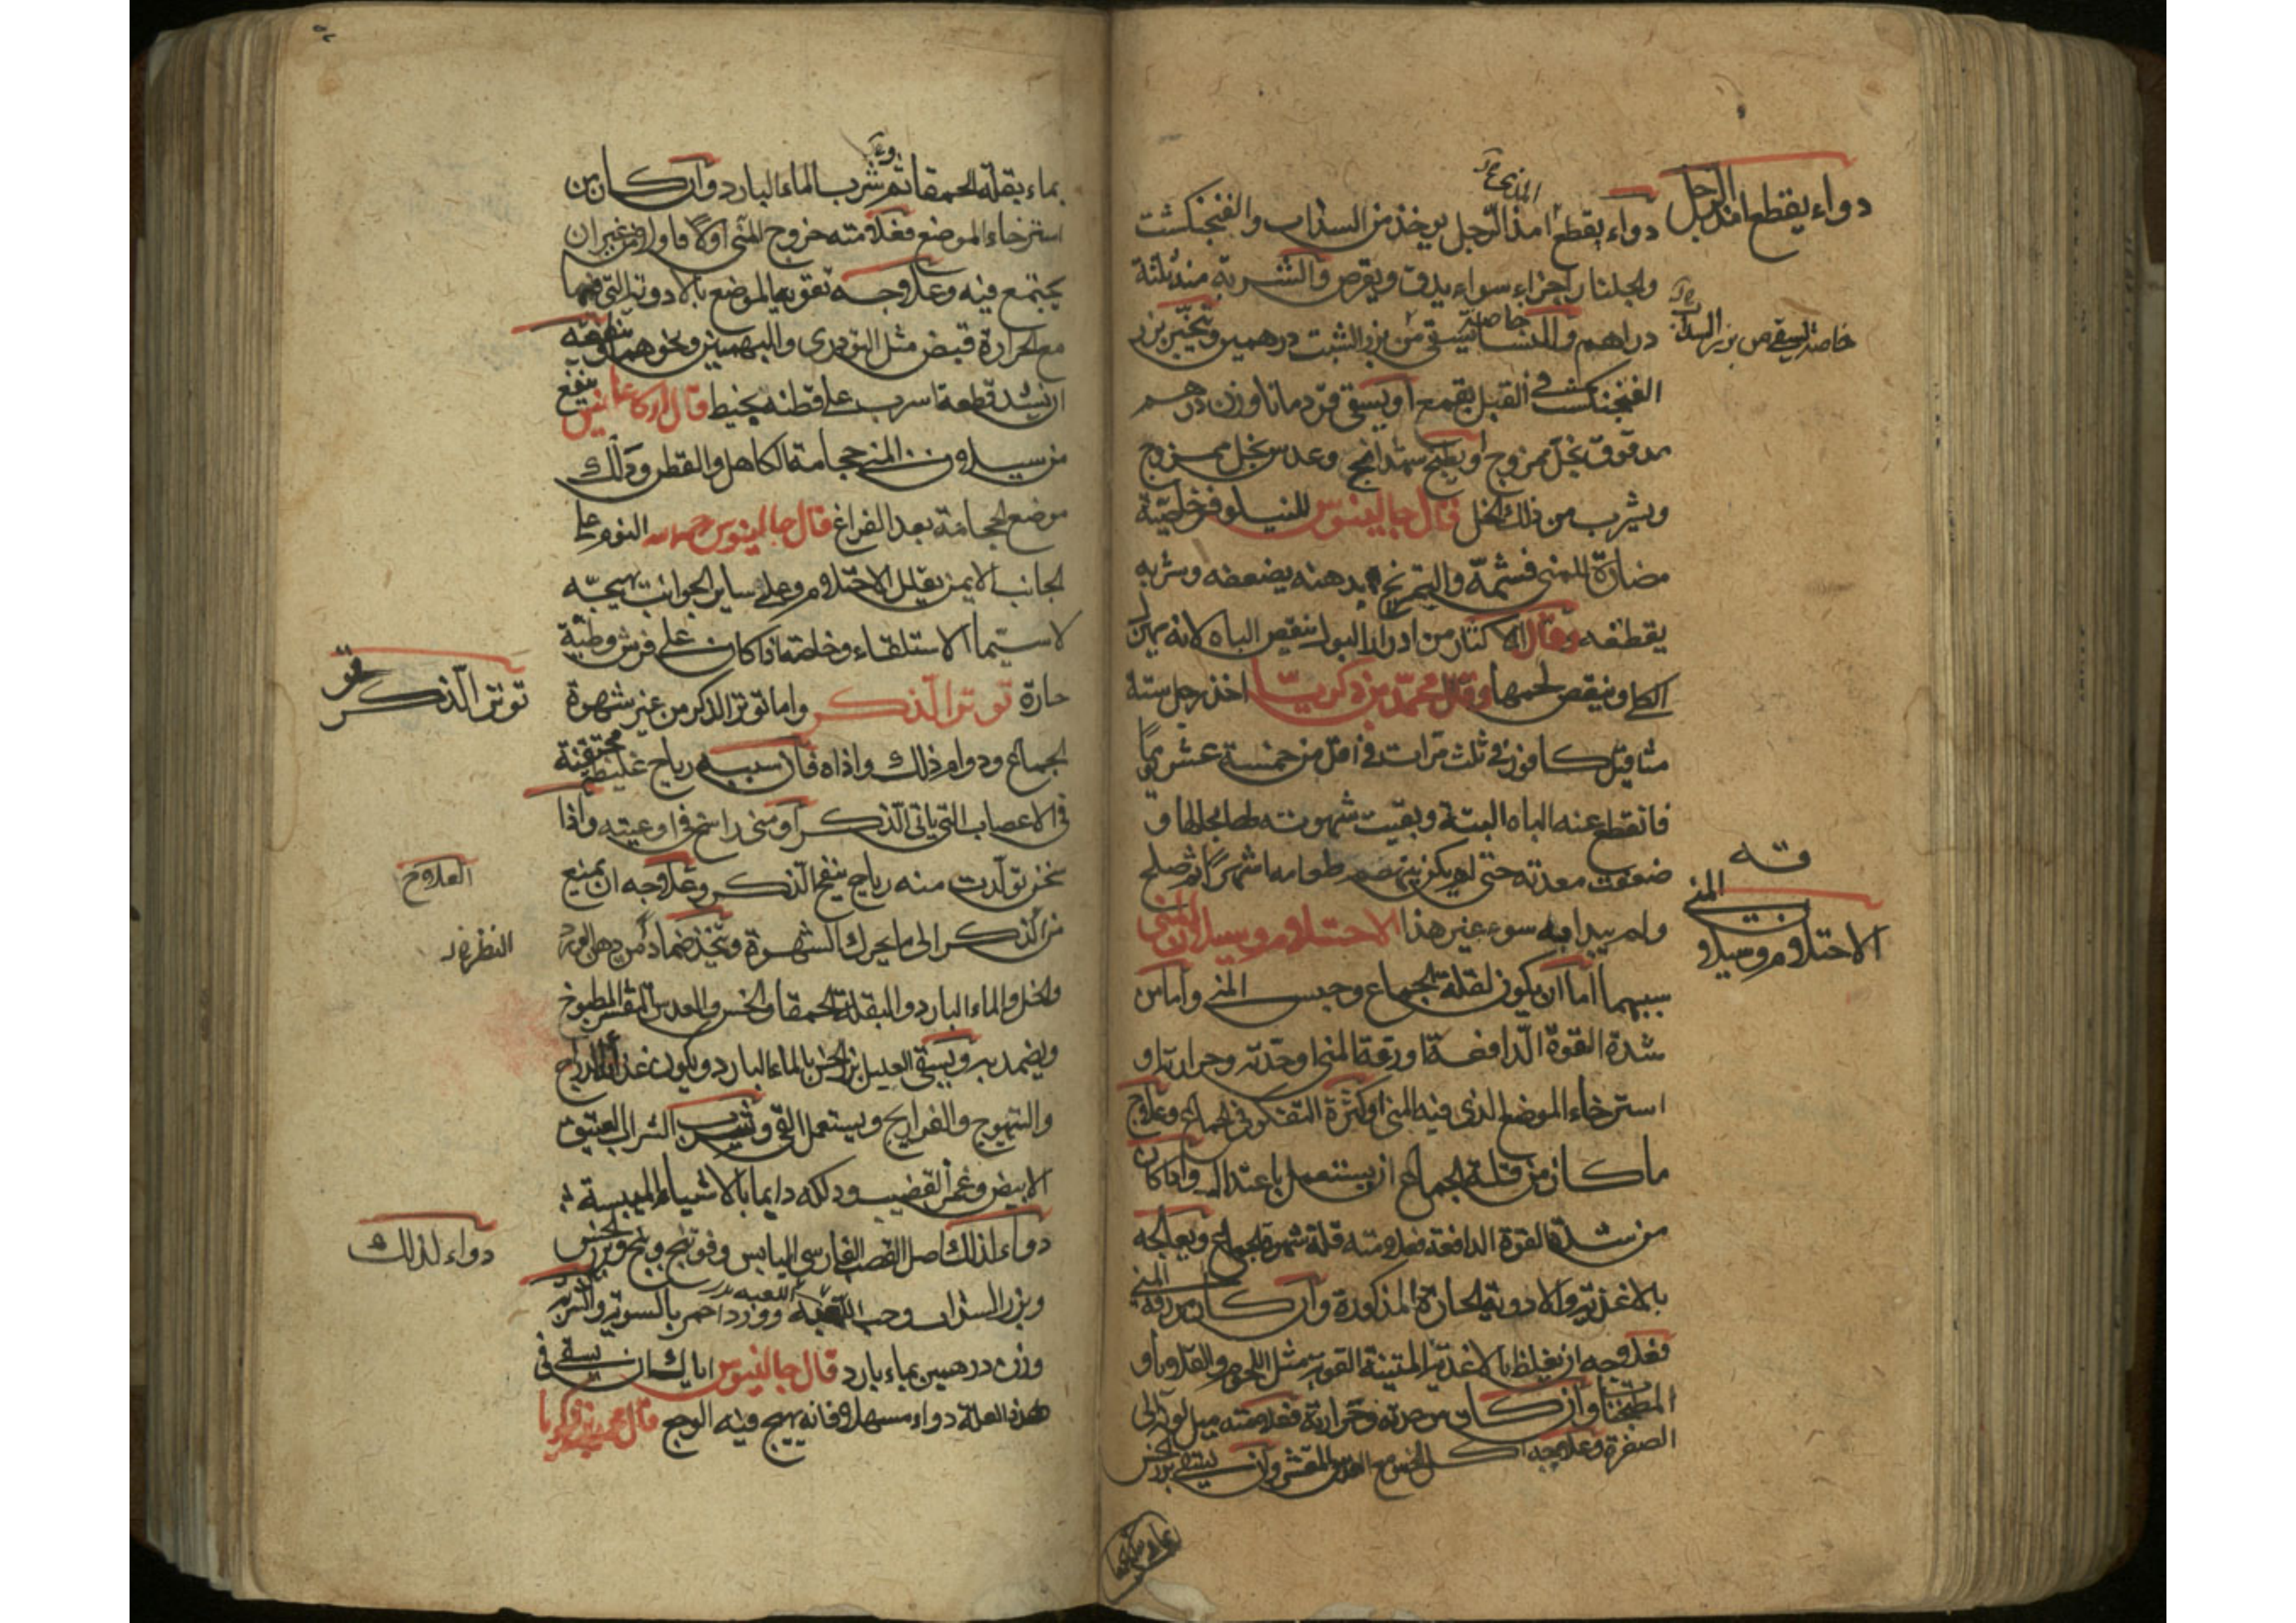 دواء يقطع امذ الرجل
دواء يقطع امذ الرجل يوخذ من السذاب والفنجنكشت
ولجلنار اجزاء سواء يدق ويقرص والشربة منه ثلثة
دراهم وللنسا خاصة يسقى من بزر الشبت درهمين وبزر
خاصة يسقى من بزر السداب
الفنجنكشت في القبل بقمع او يسقى قردمانا وزن درهم
مدقوق بخل ممزوج او يطبخ شهدانج وعدس بخل ممزوج
ويشرب من ذلك الخل قال جالينوس للنيلوفر خاصية
مضارة للمنى فشمه والتمريخ بدهنه يضعفه وشربه
يقطعه وقال الاكثار من ادرار البول ينقص الباه لانه يهزل
الكلى وينقص لحمها وقال محمد بن زكريا اخذ رجل ستة
مثاقيل كافور في ثلث مرات في اقل من خمسة عشر يوما
فانقطع عنه الباه البتة وبقيت شهوته بحالها و
ضعفت معدته حتى لم يكن ينهضم طعامه اشهرا ثم صلح
ولم يبدا به سوء غير هذا الاحتلام وسيلان المنى
الاحتلام وسيلان المنى
سببهما اما ان يكون لقلة الجماع وحبس المنى واما من
شدة القوة الدافعة او رقة المنى او حدته وحرارته او
استرخاء الموضع الذى فيه المنى او كثرة التفكر فى الجماع وعلاج
ما كان من قلة الجماع ان يستعمل باعتدال واذا كان
من شدة القوة الدافعة فعلامته قلة شهوة الجماع ويعالجه
بالاغذية والادوية الحارة المذكورة وان كان من رقة المنى
فعلاجه ان يغلظ بالاغذية المتينة القوية مثل اللحوم والقلايا و
المطجنات وان كان من حدته وحرارته فعلامته ميل لونه الى
الصفرة وعلاجه اكل الخس مع العدس المقشر وان يسقى بزر الخس
بماء بقلة الحمقا ثم شرب الماء البارد وان كان من
استرخاء الموضع فعلامته خروج المنى اولا فاولا من غير ان
يجتمع فيه وعلاجه تقوية الموضع بالادوية التى فيها
مع الحرارة قبض مثل التودرى والبهمنين ونحوهما وينفعه
ان يشد قطعة اسرب على قطنه بخيط قال اركاغانيس ينفع
من سيلان المنى حجامة الكاهل والقطر وذلك
موضع الحجامة بعد الفراغ قال جالينوس رحمه الله النوم على
الجانب الايمن يقلل الاحتلام وعلى ساير الجوانب يهيجه
لاسيما الاستلقاء وخاصة اذا كان على فرش وطية
حارة توتر الذكر واما توتر الذكر من غير شهوة
توتر الذكر
الجماع ودوام ذلك واذاه فان سببه رياح غليظة محتقنة
فى الاعصاب التى ياتى الذكر او منى راسخ فى اوعيته واذا
سخن تولدت منه رياح ينفخ الذكر وعلاجه ان يمنع
العلاج
من الذكر الى ما يحرك الشهوة ويتخذ ضمادا من دهن الورد
النظر
والخل والماء البارد والبقلة الحمقا والخس والعدس المقشر المطبوخ
ويضمد به ويسقى العليل بزر الخس بالماء البارد ويكون غذاؤه الدراج
والتيهوج والفراريج ويستعمل القى وشرب الشراب العتيق
الابيض وغمز القضيب ودلكه دايما بالاشياء الميبسة
دواء لذلك اصل القصب الفارسى اليابس وفوتنج وبنج وبزر خس
دواء لذلك
وبزر السذاب وحب اللعبة وورد احمر بالسوية والشربة
وزن درهمين بماء بارد قال جالينوس اياك ان يسقى فى
هذه العلة دواء مسهلا فانه يهيج فيه الوجع قال محمد بن زكريا